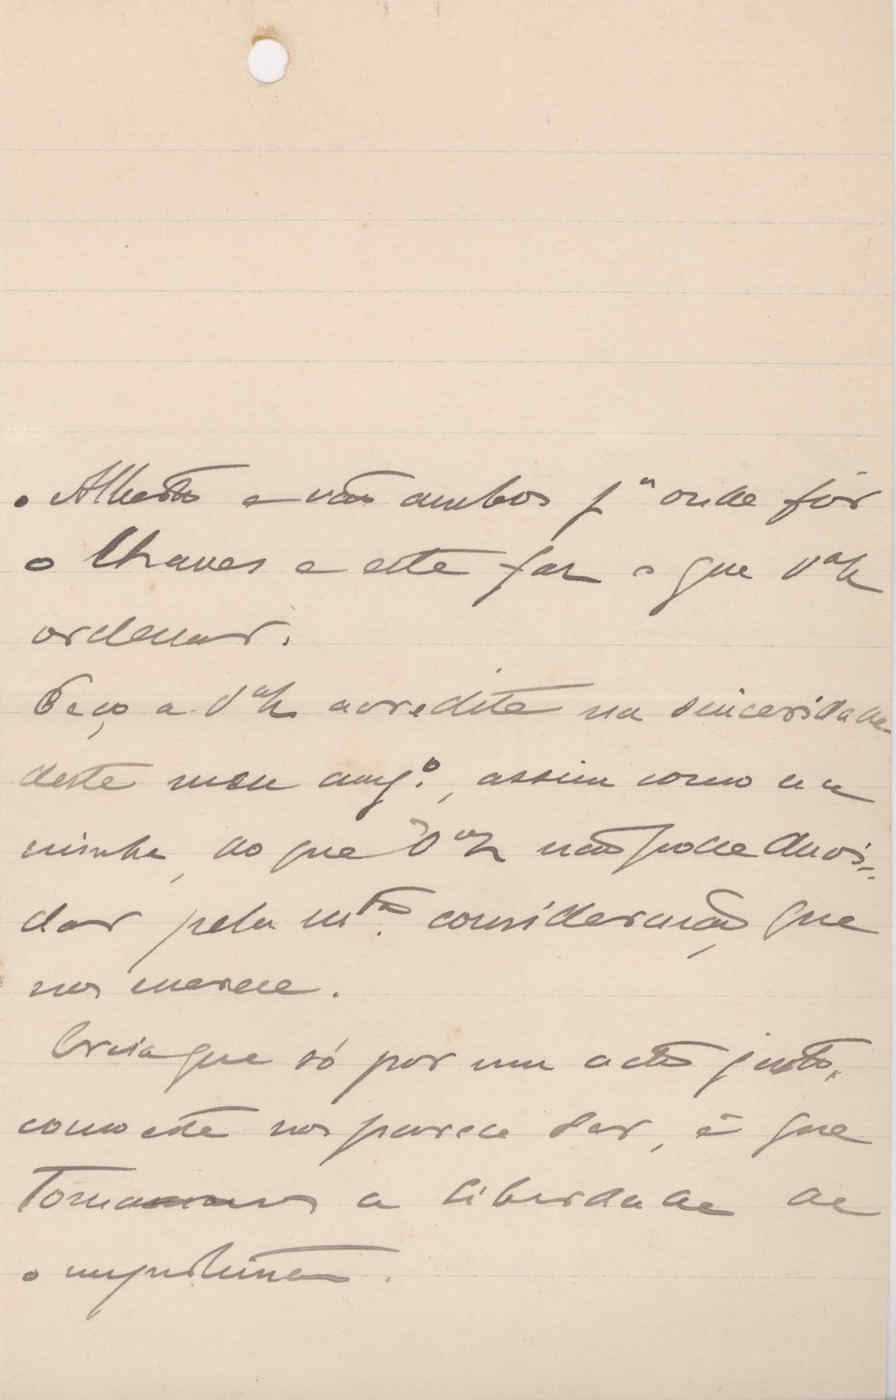 o Alberto e vão ambos p.ª onde fôr
o Chaves e este faz o que V.ª
ordenar.
Peço a V.ª acredite na sinceridade
deste meu amg.º, assim como na
minha, do que V.ª não pode duvi-
dar pela mt.ª consideração que
nos merece.
Creia que só por um acto justo,
como este nos parece ser, é que
tomamos a liberdade de
o importunar.